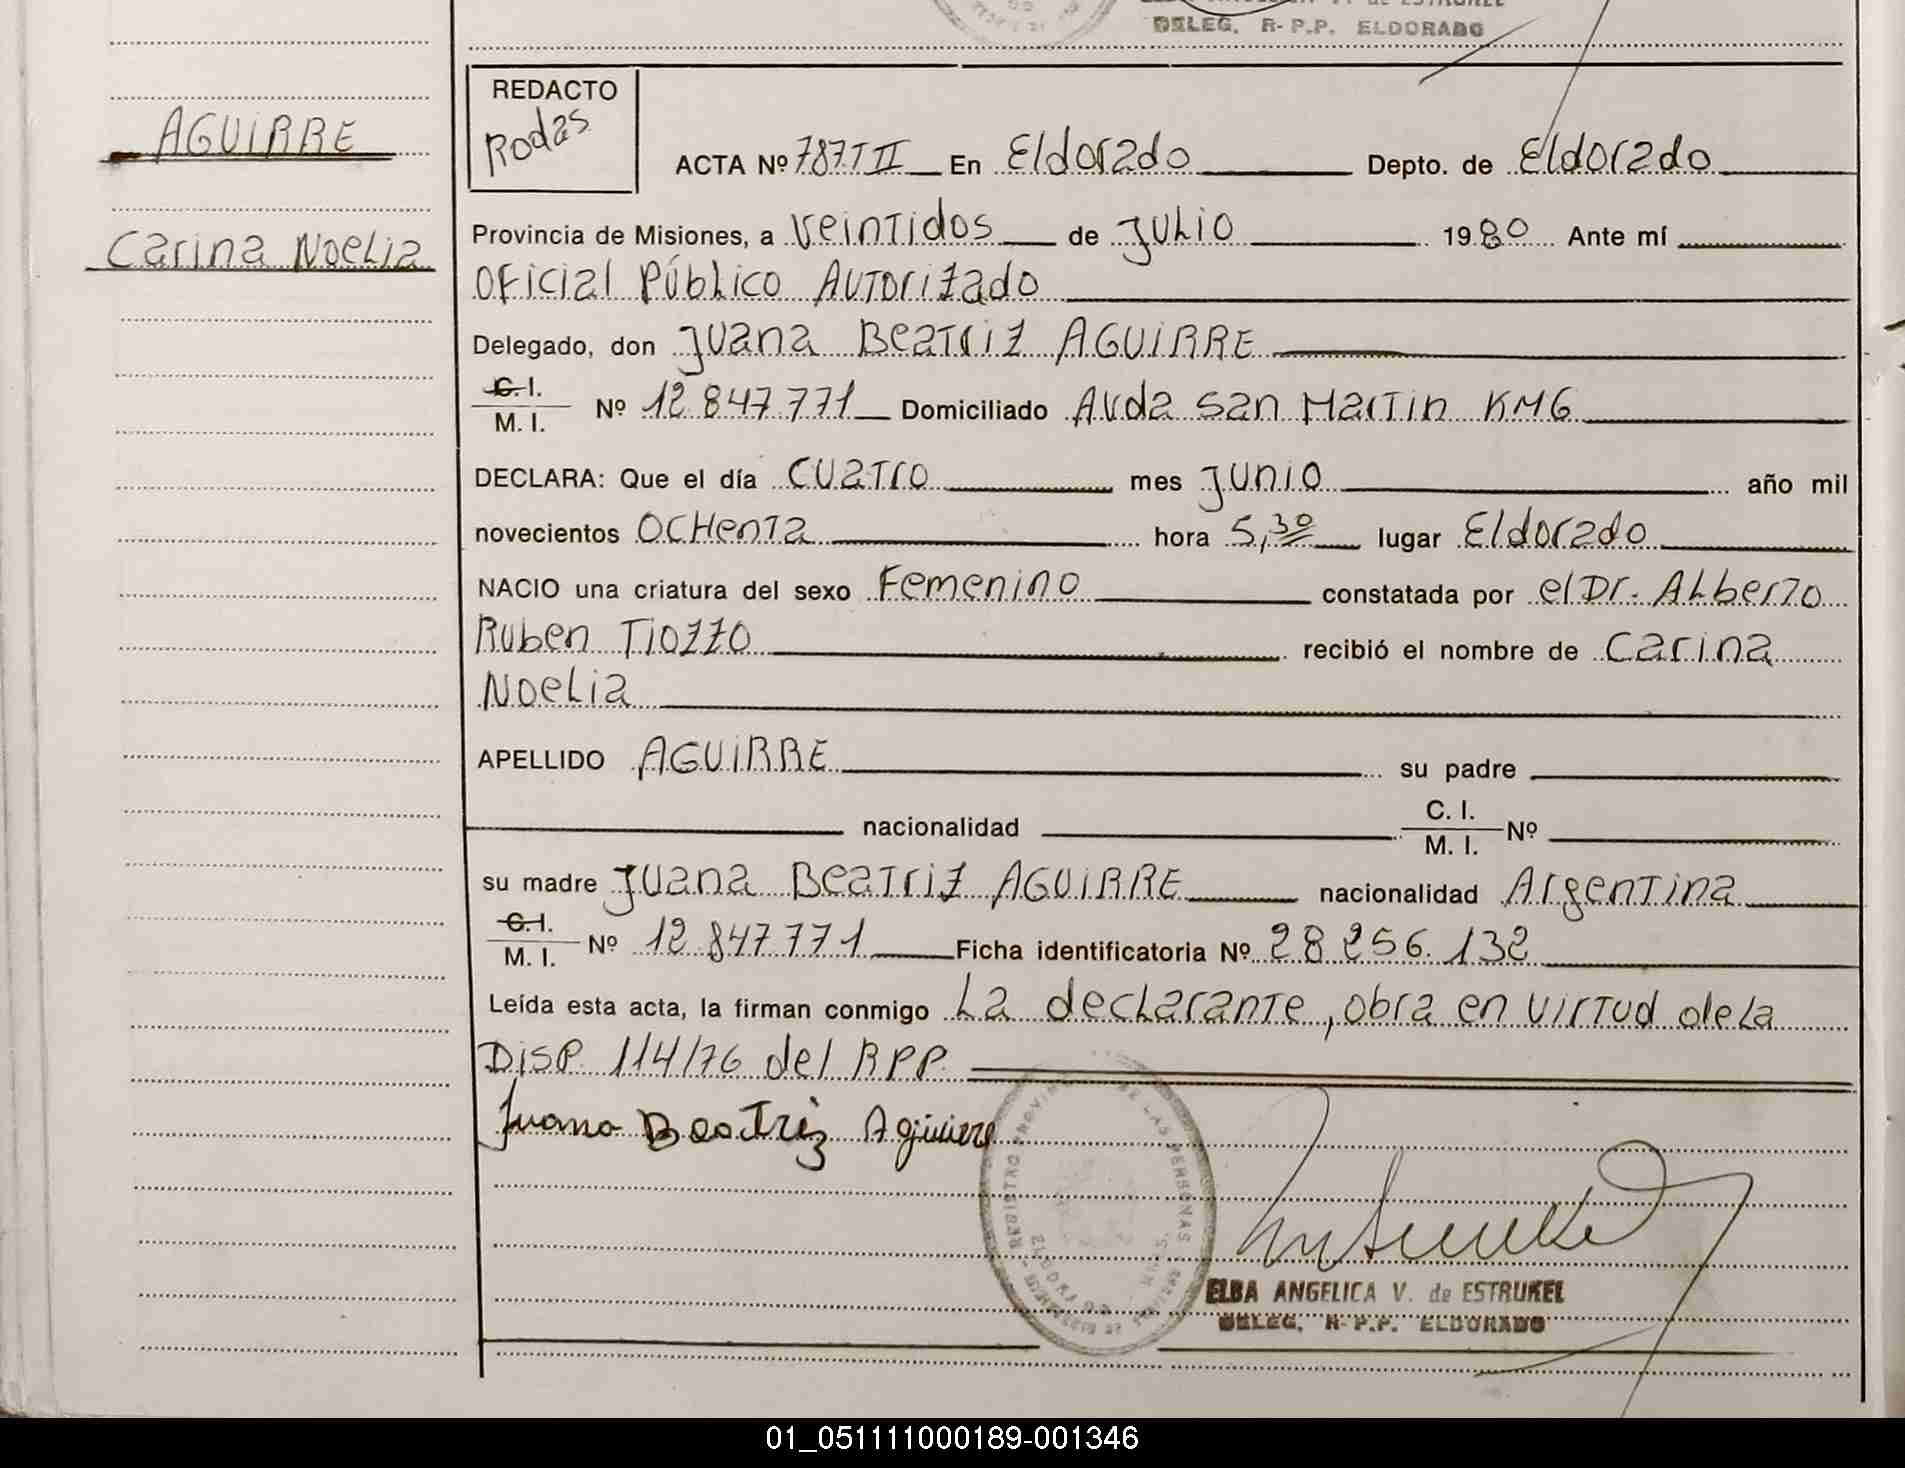 DELEG. R-P.P. ELDORADO
AGUIRRE
Carina Noelia
REDACTO
Rodas
ACTA Nº 787 T II En Eldorado Depto. de Eldorado
Provincia de Misiones, a veintidos de Julio 1980 Ante mí
Oficial Público Autorizado
Delegado, don Juana Beatriz AGUIRRE
C. I.
M. I. Nº 12.847.771 Domiciliado Avda San Martin KM6
DECLARA: Que el día cuatro mes Junio año mil
novecientos ochenta hora 5,30 lugar Eldorado
NACIO una criatura del sexo Femenino constatada por el Dr. Alberto
Ruben Tiozzo recibió el nombre de Carina
Noelia
APELLIDO AGUIRRE su padre
nacionalidad C. I.
M. I. Nº
su madre Juana Beatriz AGUIRRE nacionalidad Argentina
C. I.
M. I. Nº 12.847.771 Ficha identificatoria Nº 28.256.132
Leída esta acta, la firman conmigo La declarante, obra en virtud de la
Disp. 114/76 del RPP.
Juana Beatriz Aguirre
REGISTRO PROVINCIAL DE LAS PERSONAS
ELBA ANGELICA V. de ESTRUKEL
DELEG. R-P.P. ELDORADO
01_051111000189-001346